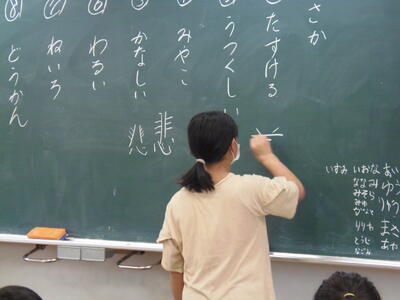 さか
たすける
うつくしい
みやこ
かなしい
悲 悲
⑥ わるい
⑦ ねいろ
⑧ どうかん
いずみ
いおな
ななみ
みそら
みゆ
りりや
とうじ
あい
ゆう
まさ
あや